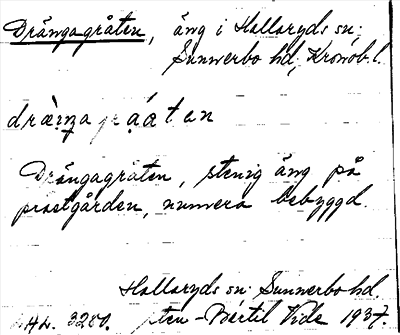 Drängagråten, äng i Hallaryds sn.
Sunnerbo hd, Kronob. l.
Drängagråten, stenig äng på
prostgården, numera bebyggd.
Hallaryds sn. Sunnerbo hd.
Bertil Vide 1937.